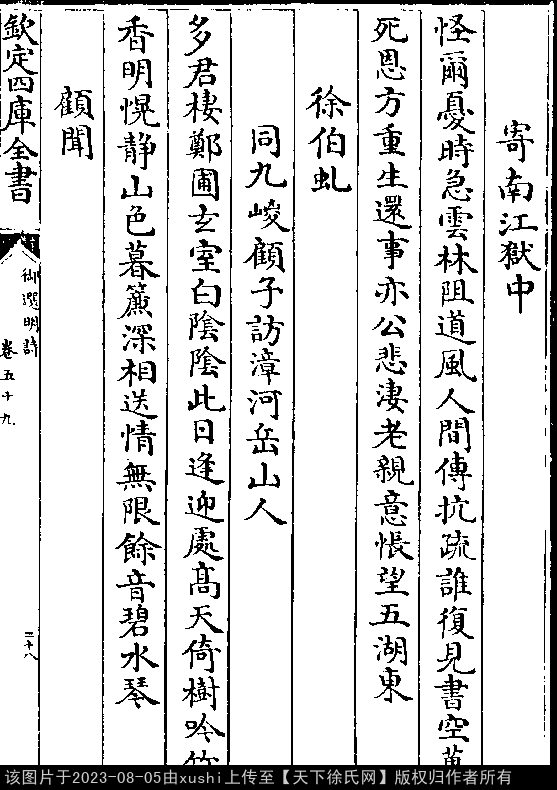 寄南江獄中
怪爾憂時急雲林阻道風人間傳抗疏誰復見書空萬
死恩方重生還事亦公悲淒老親意悵望五湖東
徐伯虬
同九峻顧子訪漳河岳山人
多君棲鄭圃玄室白陰陰此日逢迎處髙天倚樹吟竹
香明幌静山色暮簾深相送情無限餘音碧水琴
顧聞
欽定四庫全書
御選明詩
卷五十九
三十八
该图片于2023-08-05由xushi上传至【天下徐氏网】版权归作者所有